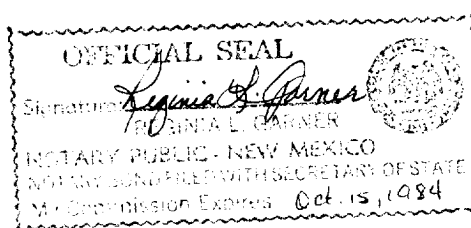 OFFICIAL SEAL
Signature Reginia L. Garner
REGINIA L. GARNER
NOTARY PUBLIC - NEW MEXICO
NOTARY BOND FILED WITH SECRETARY OF STATE
My Commission Expires Oct. 15, 1984